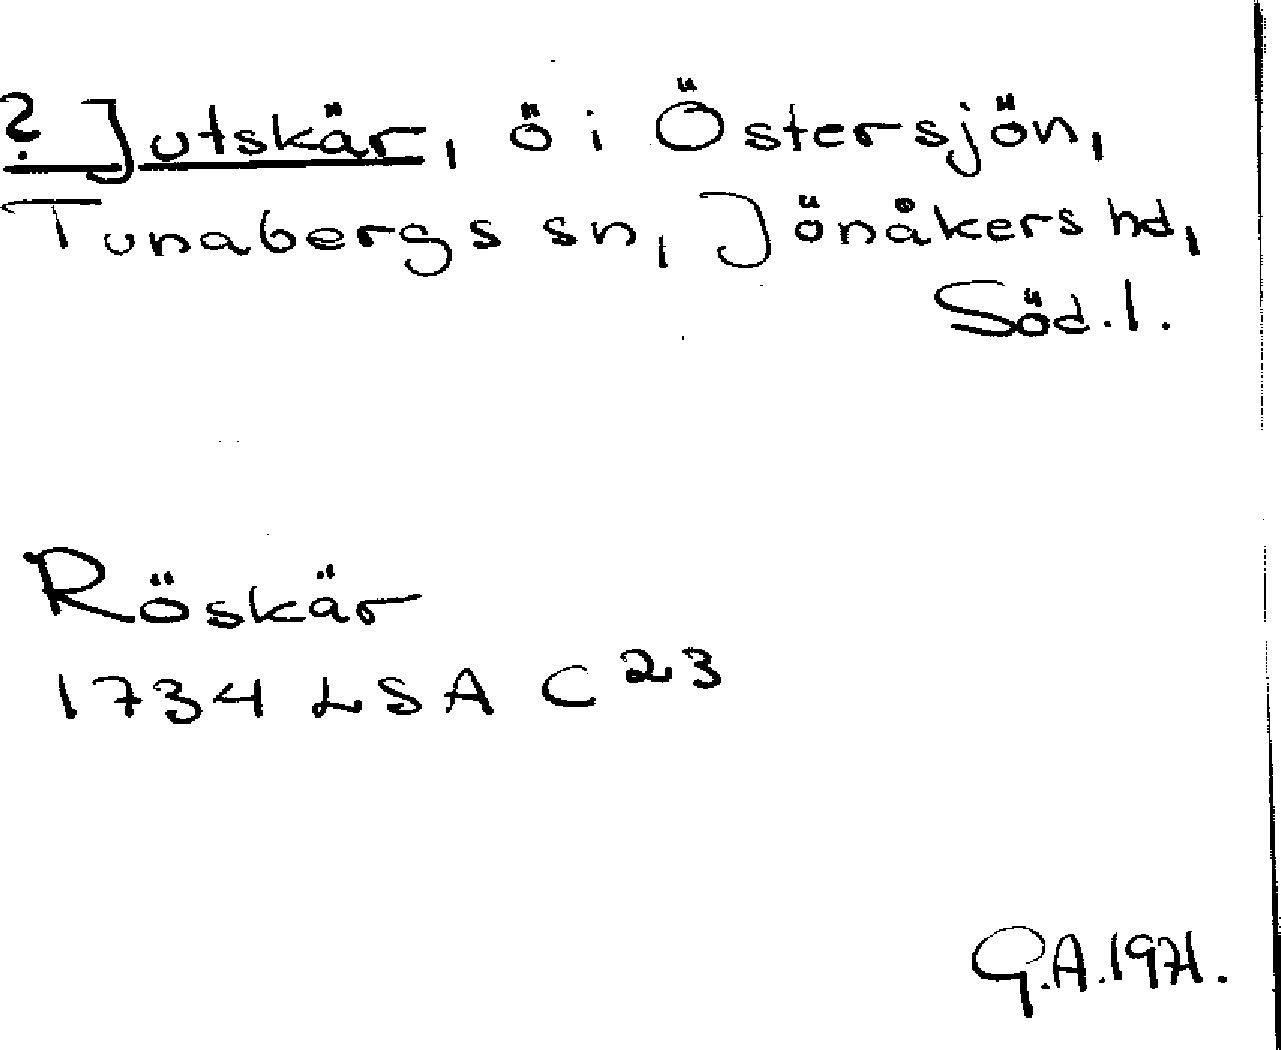 ? Jutskär, ö i Östersjön,
Tunabergs sn, Jönåkers hd,
Söd. l.
Röskär
1734 LSA C 23
G.A. 1971.